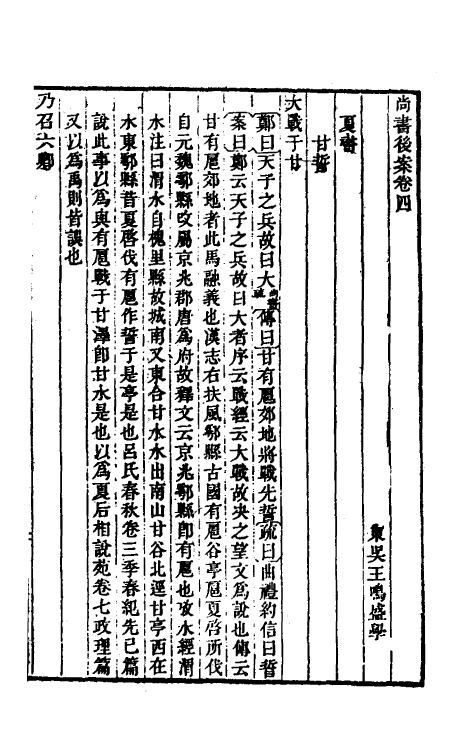 尚書後案卷四
東吳王鳴盛學
夏書
甘誓
大戰于甘
鄭曰天子之兵故曰大尚書疏傳曰甘有扈郊地將戰先誓疏曰曲禮約信曰誓
案曰鄭云天子之兵故曰大者序云戰經云大戰故夾之望文爲說也傳云
甘有扈郊地者此馬融義也漢志右扶風鄠縣古國有扈谷亭扈夏啓所伐
自元魏鄠縣改屬京兆郡唐爲府故釋文云京兆鄠縣卽有扈也攷水經渭
水注曰渭水自槐里縣故城南又東合甘水水出南山甘谷北逕甘亭西在
水東鄠縣昔夏啓伐有扈作誓于是亭是也呂氏春秋卷三季春紀先己篇
說此事以爲與有扈戰于甘澤卽甘水是也以爲夏后相說苑卷七政理篇
又以爲禹則皆誤也
乃召六卿